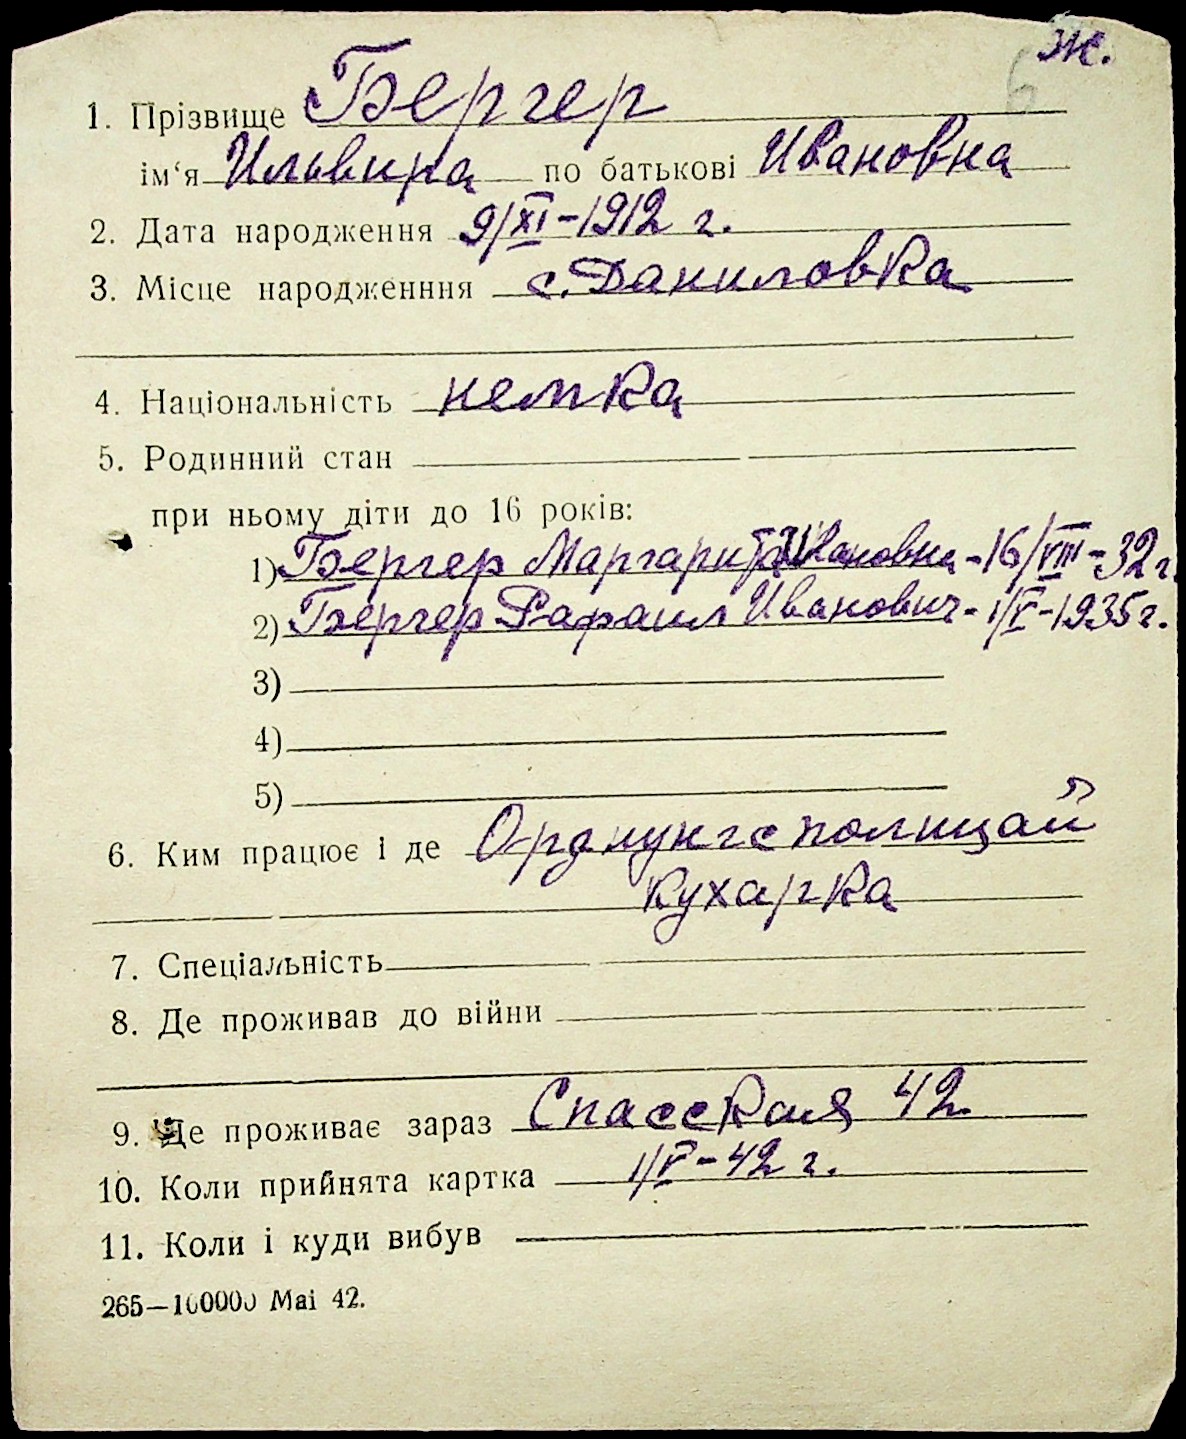 ж.
6
1. Прізвище Бергер
ім'я Ильвина по батькові Ивановна
2. Дата народження 9/XI-1912 г.
3. Місце народженння с. Даниловка
4. Національність немка
5. Родинний стан
при ньому діти до 16 років:
1) Бергер Маргарита Ивановна - 16/VIII-32 г.
2) Бергер Рафаил Иванович - 1/V-1935 г.
3)
4)
5)
6. Ким працює і де Орднунгсполицай
кухарка
7. Спеціальність
8. Де проживав до війни
9. Де проживає зараз Спасская 42
10. Коли прийнята картка 1/V-42 г.
11. Коли і куди вибув
265—100000 Mai 42.